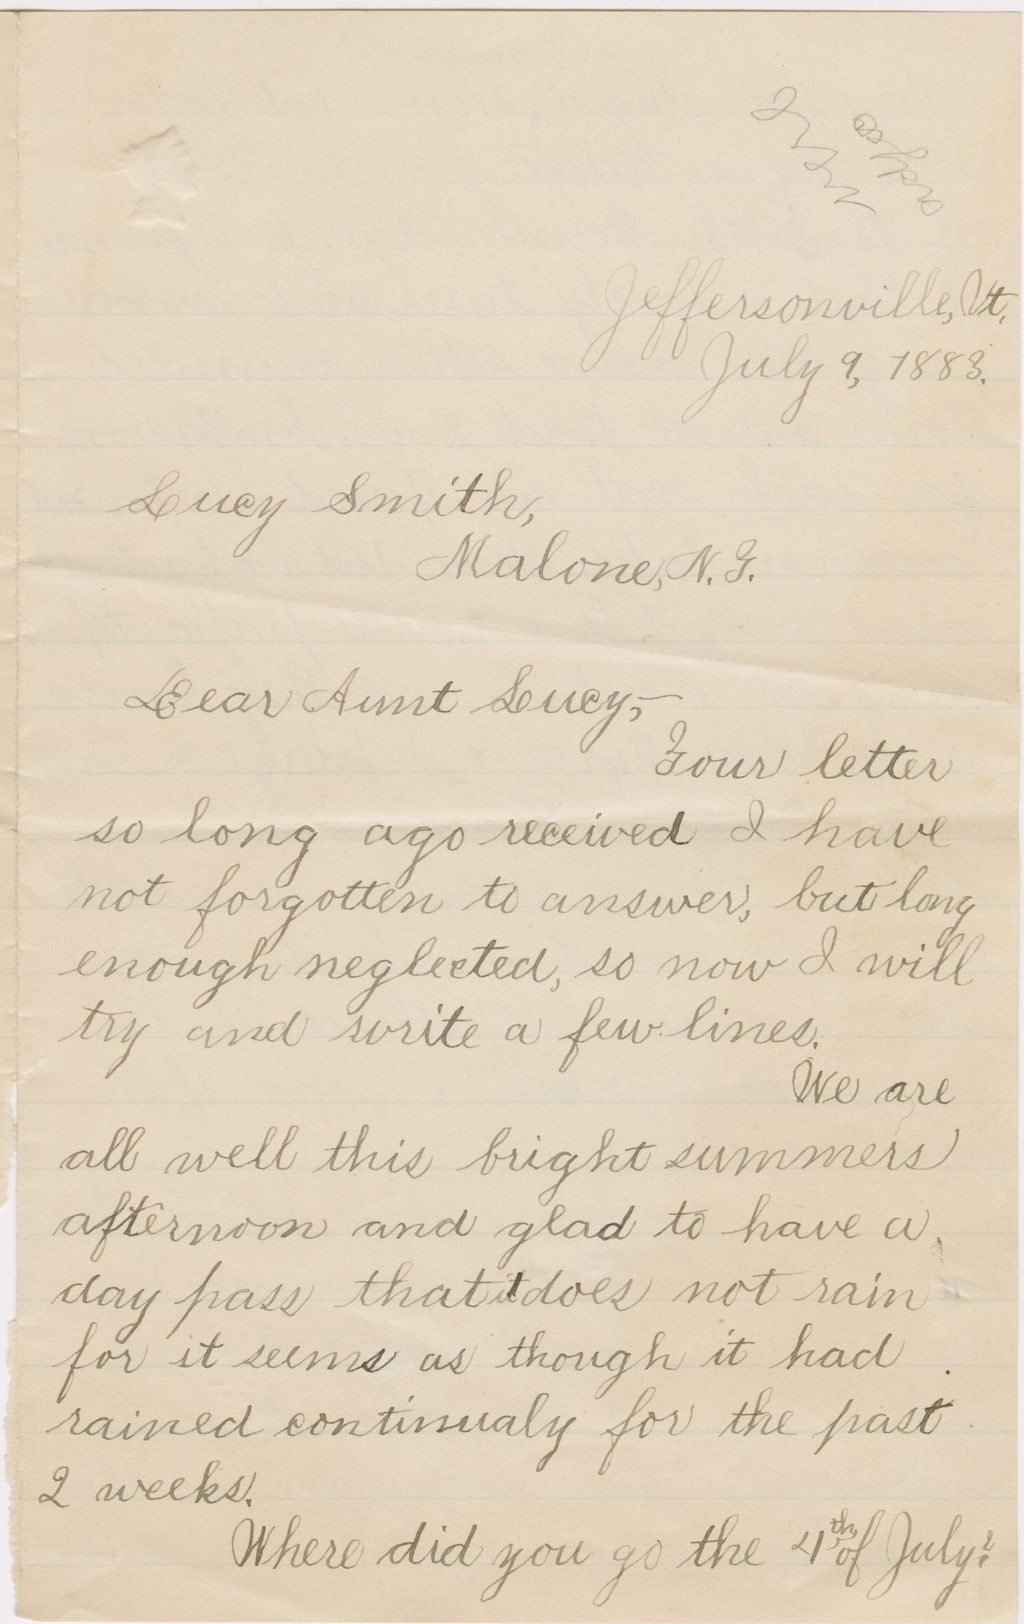 Jeffersonville, Vt.
July 9, 1883.
Lucy Smith,
Malone, N.Y.
Dear Aunt Lucy,—
Your letter
so long ago received I have
not forgotten to answer, but long
enough neglected, so now I will
try and write a few lines.
We are
all well this bright summers
afternoon and glad to have a
day pass that it does not rain
for it seems as though it had
rained continualy for the past
2 weeks.
Where did you go the 4th of July?